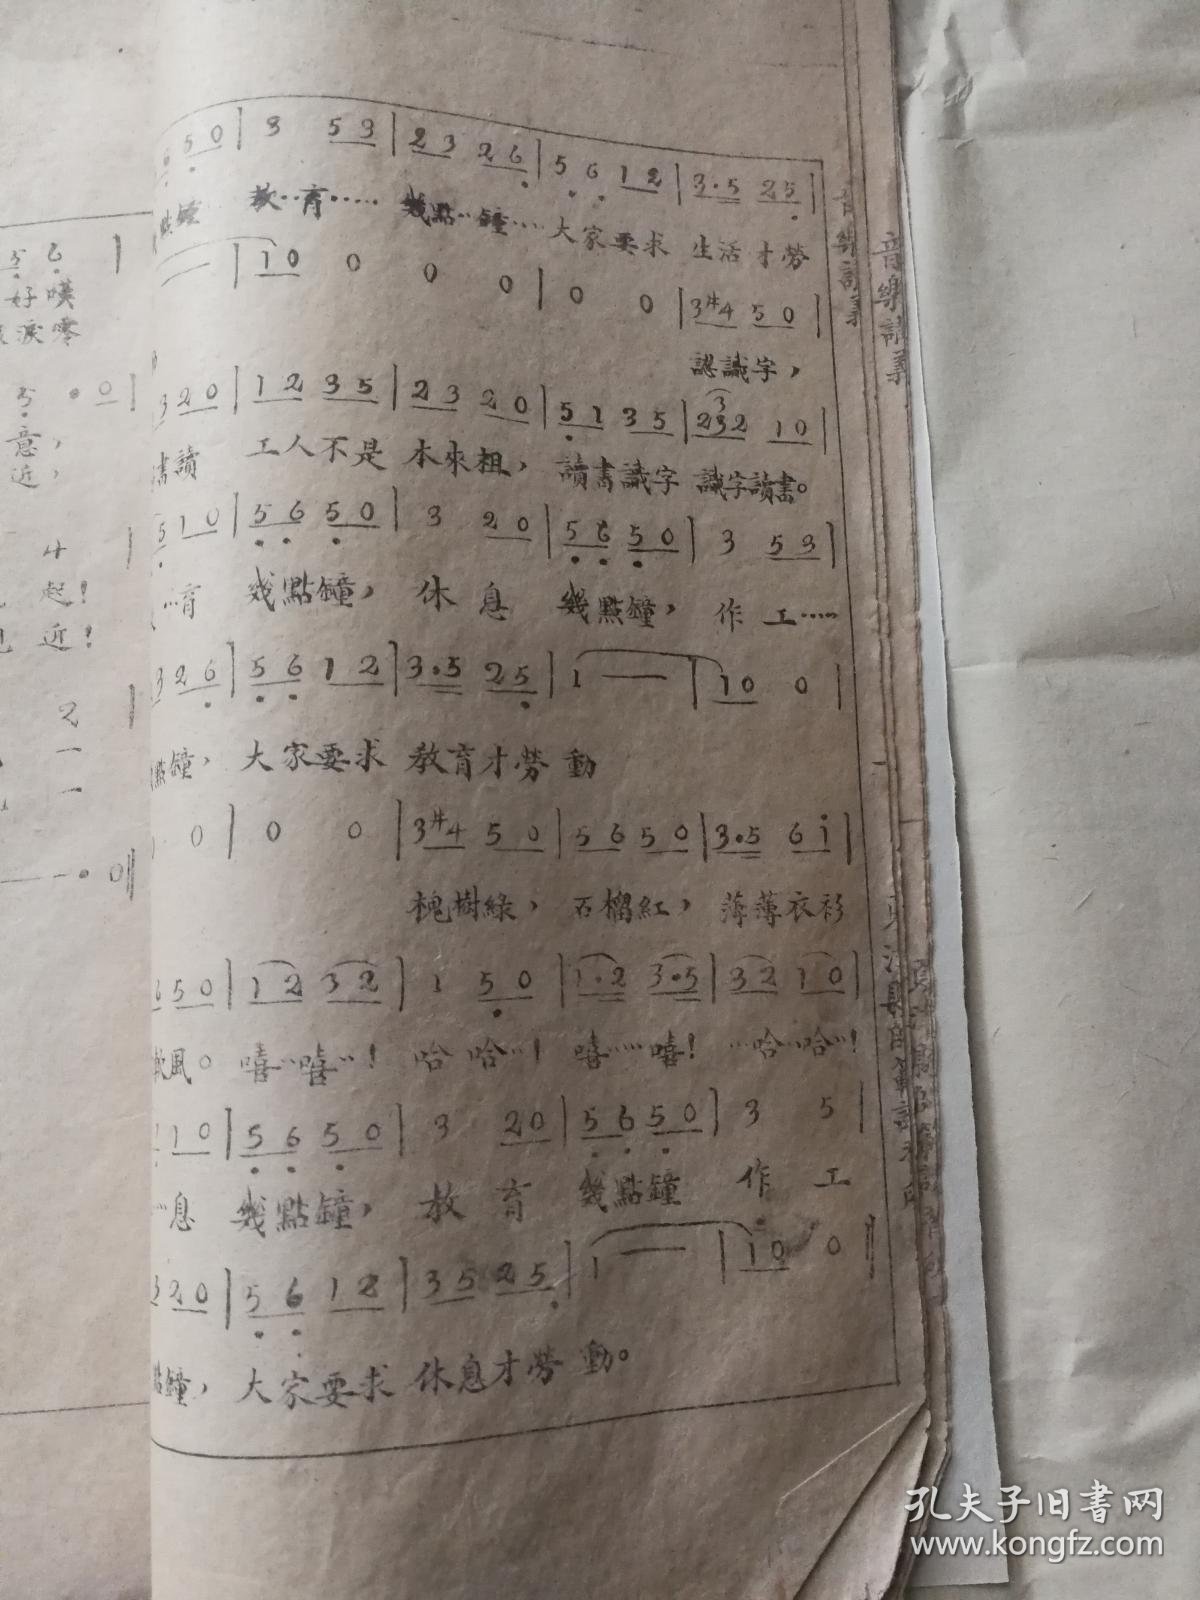 5 0 | 3 5 3 | 2 3 2 6 | 5 6 1 2 | 3·5 2 5 |
點鐘‥教‥育‥‥‥ 幾點‥鐘‥‥大家要求 生活才勞
— | 1 0 0 | 0 0 | 0 0 | 3 #4 5 0 |
認識字，
3 2 0 | 1 2 3 5 | 2 3 2 0 | 5 1 3 5 | 2 3 2 1 0 |
書讀 工人不是 本來粗， 讀書識字 識字讀書。
5 1 0 | 5 6 5 0 | 3 2 0 | 5 6 5 0 | 3 5 3 |
‥育 幾點鐘， 休 息 幾點鐘， 作 工‥‥
3 2 6 | 5 6 1 2 | 3·5 2 5 | 1 — | 1 0 0 |
點鐘， 大家要求 教育才勞 動
0 | 0 0 | 3 #4 5 0 | 5 6 5 0 | 3·5 6 i |
槐樹綠， 石榴紅， 薄薄衣衫
6 5 0 | 1 2 3 2 | 1 5 0 | 1·2 3·5 | 3 2 1 0 |
風。 嘻‥嘻‥! 哈 哈‥! 嘻‥‥嘻! ‥哈‥哈‥!
1 1 0 | 5 6 5 0 | 3 2 0 | 5 6 5 0 | 3 5 |
‥息 幾點鐘， 教 育 幾點鐘 作 工
3 2 0 | 5 6 1 2 | 3 5 2 5 | 1 — | 1 0 0 ‖
點鐘， 大家要求 休息才勞 動。
音樂講義
音樂講義
5 6 |
好嘆
淚零
5 · 0
意，
近，
4 |
起!
近!
2 |
一
一
— — · 0 ‖
孔夫子旧书网
www.kongfz.com